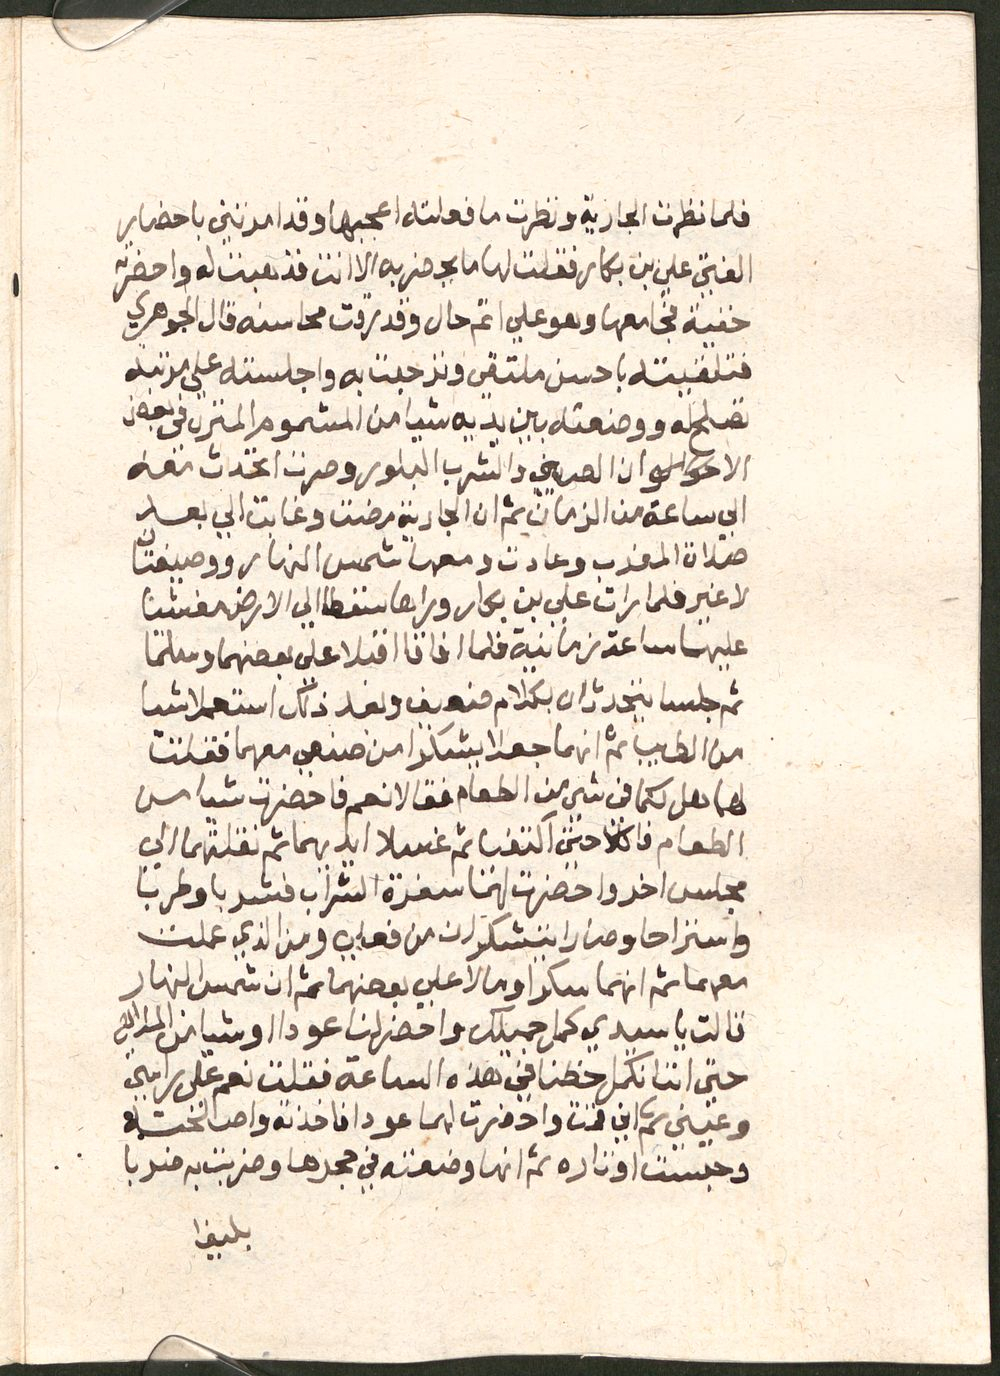 فلما نظرت الجارية ونظرت ما فعلته اعجبها وقد امرتني باحضار
الفتي علي بن بكار فقلت لها ما يحضر به الا انت فذهبت له واحضرته
خفية فجا معها وهو علي اتم حال وقد رقت محاسنه قال الجوهري
فتلقيته باحسن ملتقي وترحبت به واجلسته علي مرتبة
تصلح له ووضعت بين يديه شيا من المشموم المفتن في بعض
الاواني الصيني والشرب البلور وصرت اتحدث معه
الي ساعة من الزمان ثم ان الجارية مضت وغابت الي بعد
صلاة المغرب وعادت ومعها شمس النهار ووصيفتان
لا غير فلما رات علي بن بكار وراها سقطا الي الارض مغشيا
عليهما ساعة زمانية فلما افاقا اقبلا علي بعضهما وسلما
ثم جلسا يتحدثان بكلام ضعيف وبعد ذلك استعملا شيا
من الطيب ثم انهما جعلا يشكرا من صنعي معهما فقلت
لهما هل لكما في شي من الطعام فقالا نعم فاحضرت شيا من
الطعام فاكلا حتي اكتفيا ثم غسلا ايديهما ثم نقلتهما الي
مجلس اخر واحضرت لهما سفرة الشراب فشربا وطربا
واستراحا وصارا يتشكران من فعلي ومن الذي عملت
معهما ثم انهما سكرا ومالا علي بعضهما ثم ان شمس النهار
قالت يا سيدي كمل جميلك واحضر لنا عودا او شيا من الملاهي
حتي اننا نكمل حظنا في هذه الساعة فقلت نعم علي راسي
وعيني ثم اني قمت واحضرت لها عودا فاخذته واصلحته
وجسست اوتاره ثم انها وضعته في حجرها وضربت به ضربا
بليغا